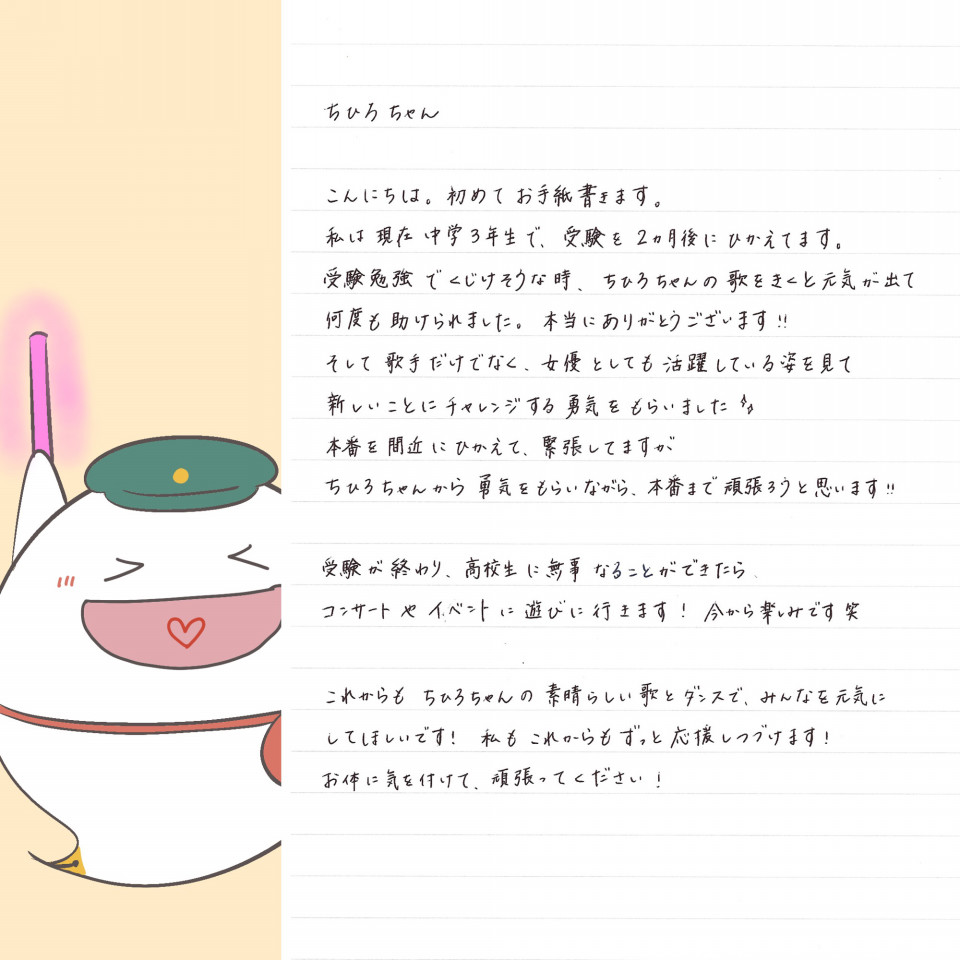 ちひろちゃん
こんにちは。初めてお手紙書きます。
私は現在中学3年生で、受験を2カ月後にひかえてます。
受験勉強でくじけそうな時、ちひろちゃんの歌をきくと元気が出て
何度も助けられました。本当にありがとうございます!!
そして歌手だけでなく、女優としても活躍している姿を見て
新しいことにチャレンジする勇気をもらいました
本番を間近にひかえて、緊張してますが
ちひろちゃんから勇気をもらいながら、本番まで頑張ろうと思います!!
受験が終わり、高校生に無事なることができたら、
コンサートやイベントに遊びに行きます! 今から楽しみです笑
これからもちひろちゃんの素晴らしい歌とダンスで、みんなを元気に
してほしいです! 私もこれからもずっと応援しつづけます!
お体に気を付けて、頑張ってください!